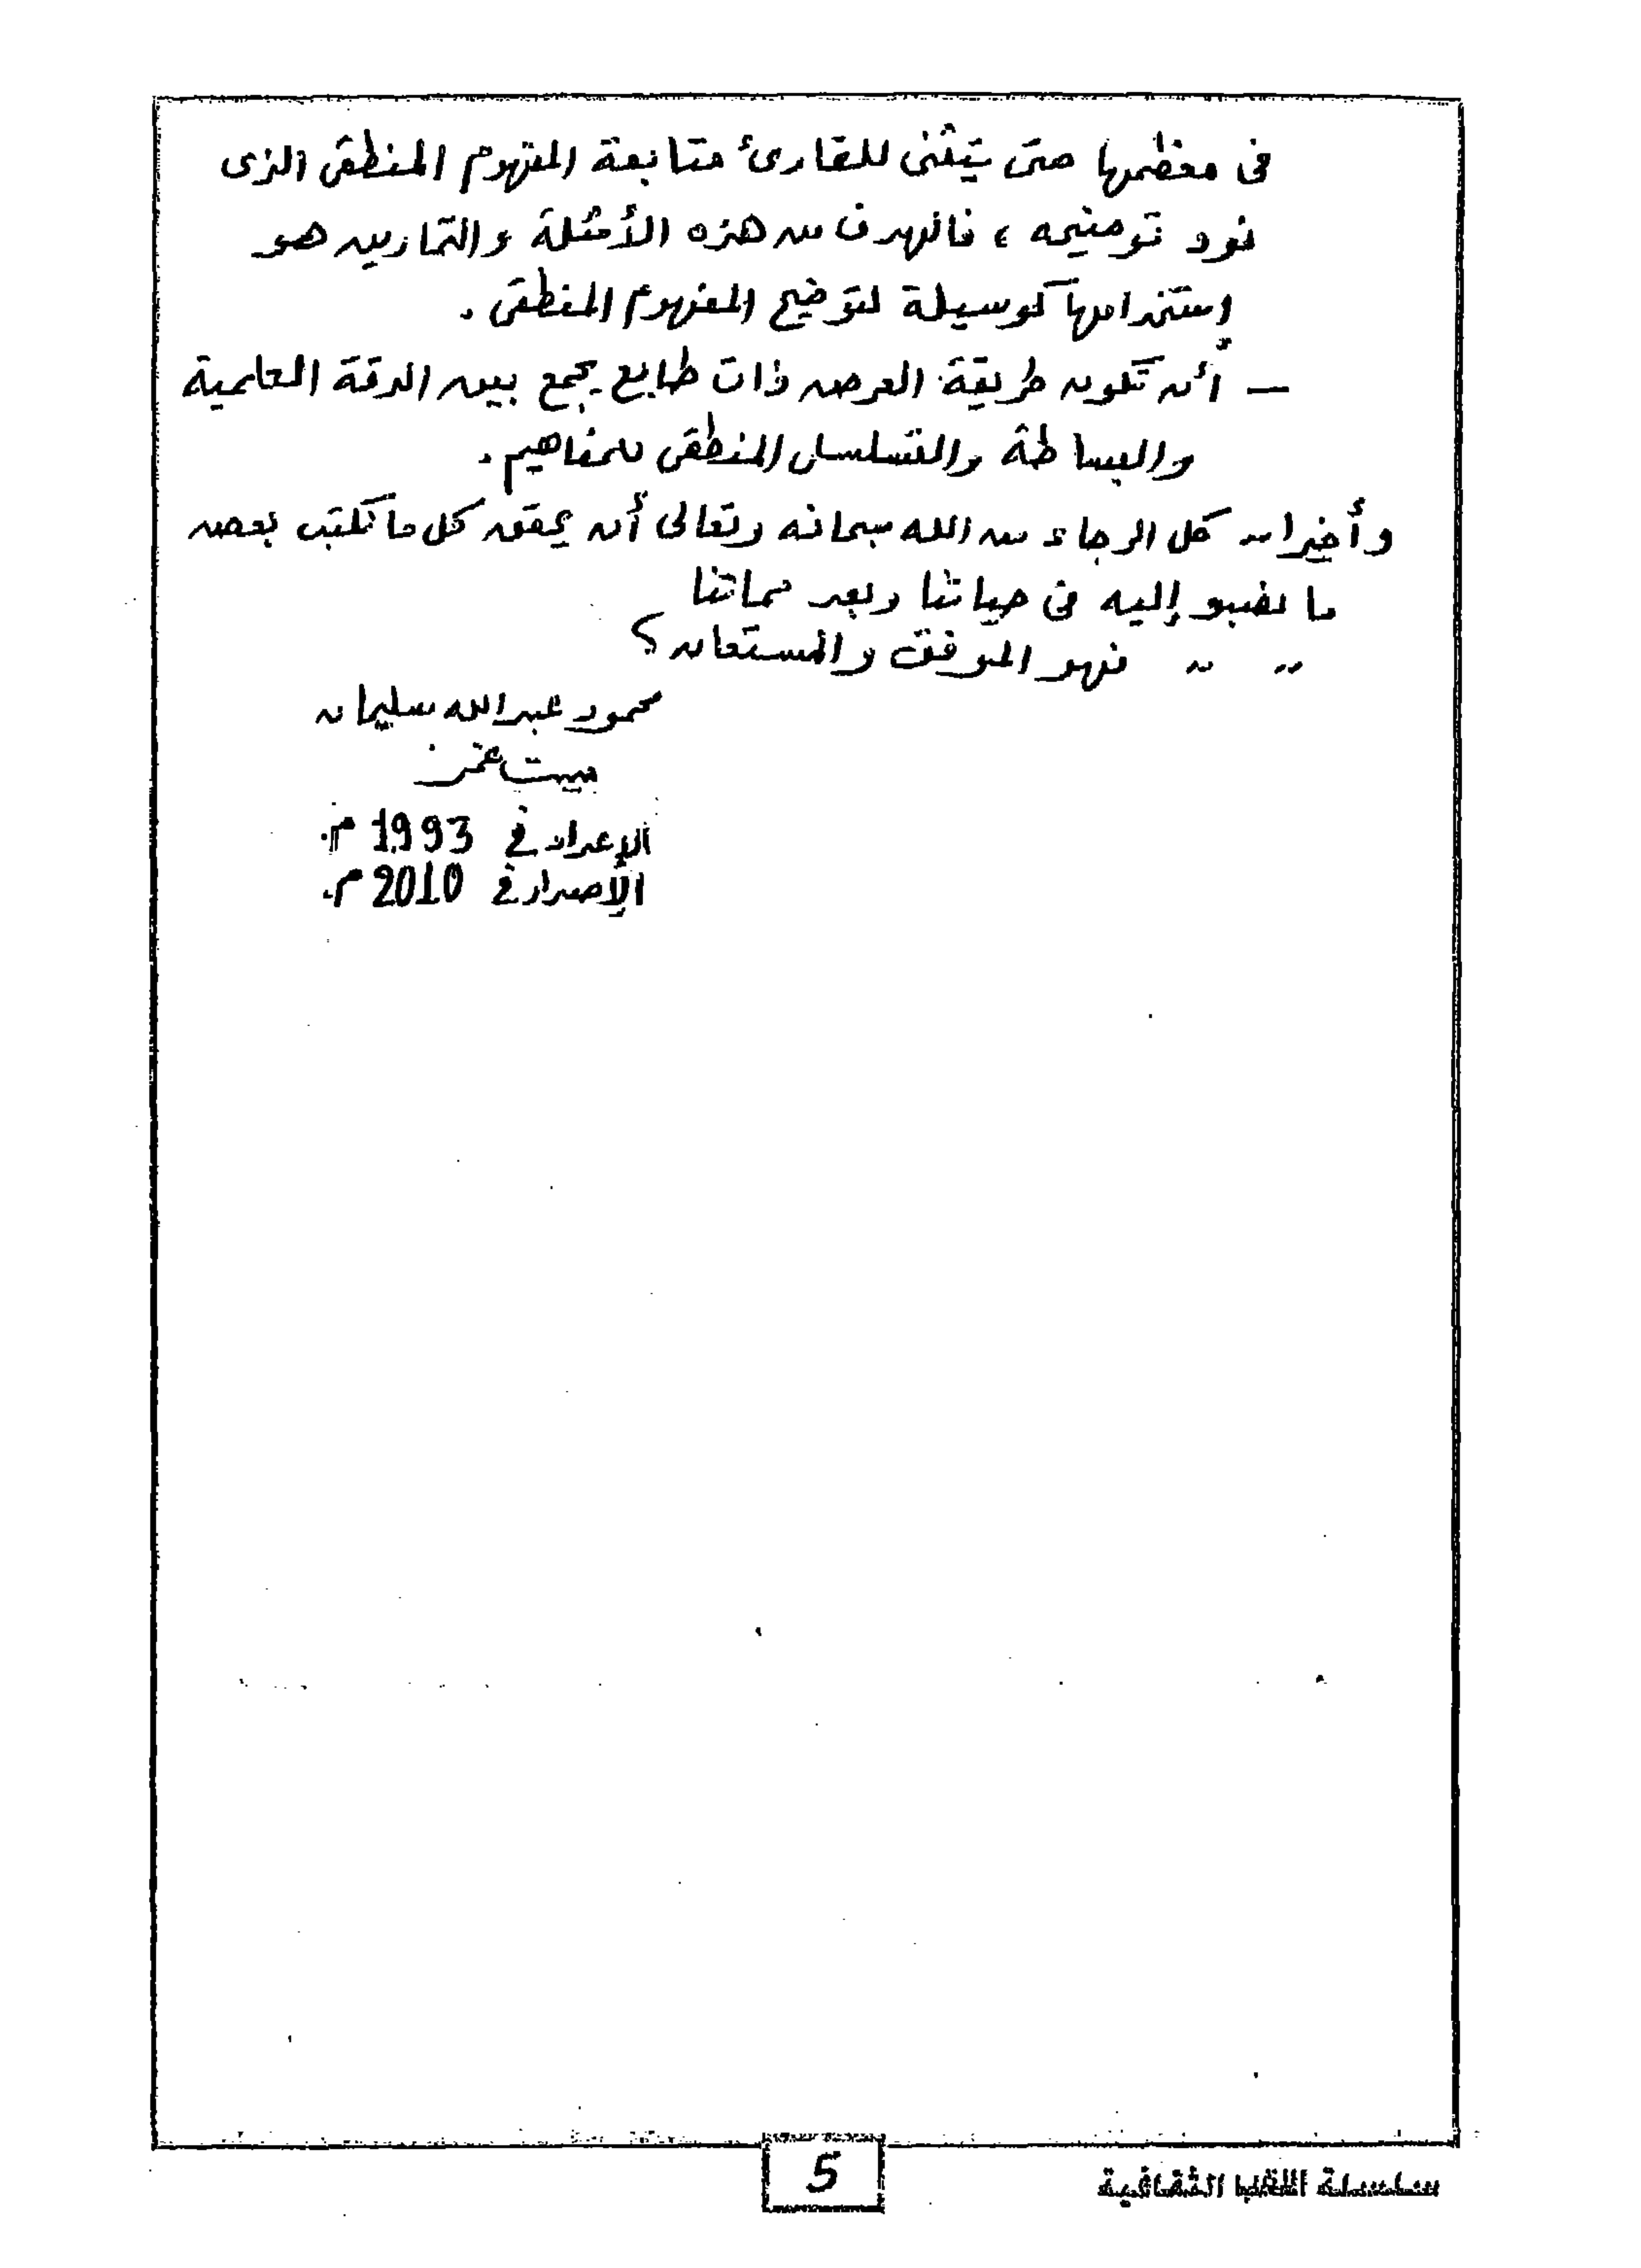 فى معظمها حتى يتثنى للقارئ متابعة المفهوم المنطقى الذى
نود توضيحه ، فالهدف من هذه الأمثلة والتمارين هو
إستخدامها كوسيلة لتوضيح المفهوم المنطقى .
– أن تكون طريقة العرض ذات طابع يجمع بين الدقة العلمية
والبساطة والتسلسل المنطقى للمفاهيم .
وأخيرا .. كل الرجاء من الله سبحانه وتعالى أن يحقق كل ما نكتب بعض
ما نصبو إليه فى حياتنا وبعد مماتنا
.. .. فهو الموفق والمستعان ؟
محمود عبدالله سليمان
ميت غمر
الإعداد في 1993 م.
الإصدار في 2010 م.
5
سلسلة الثقافية